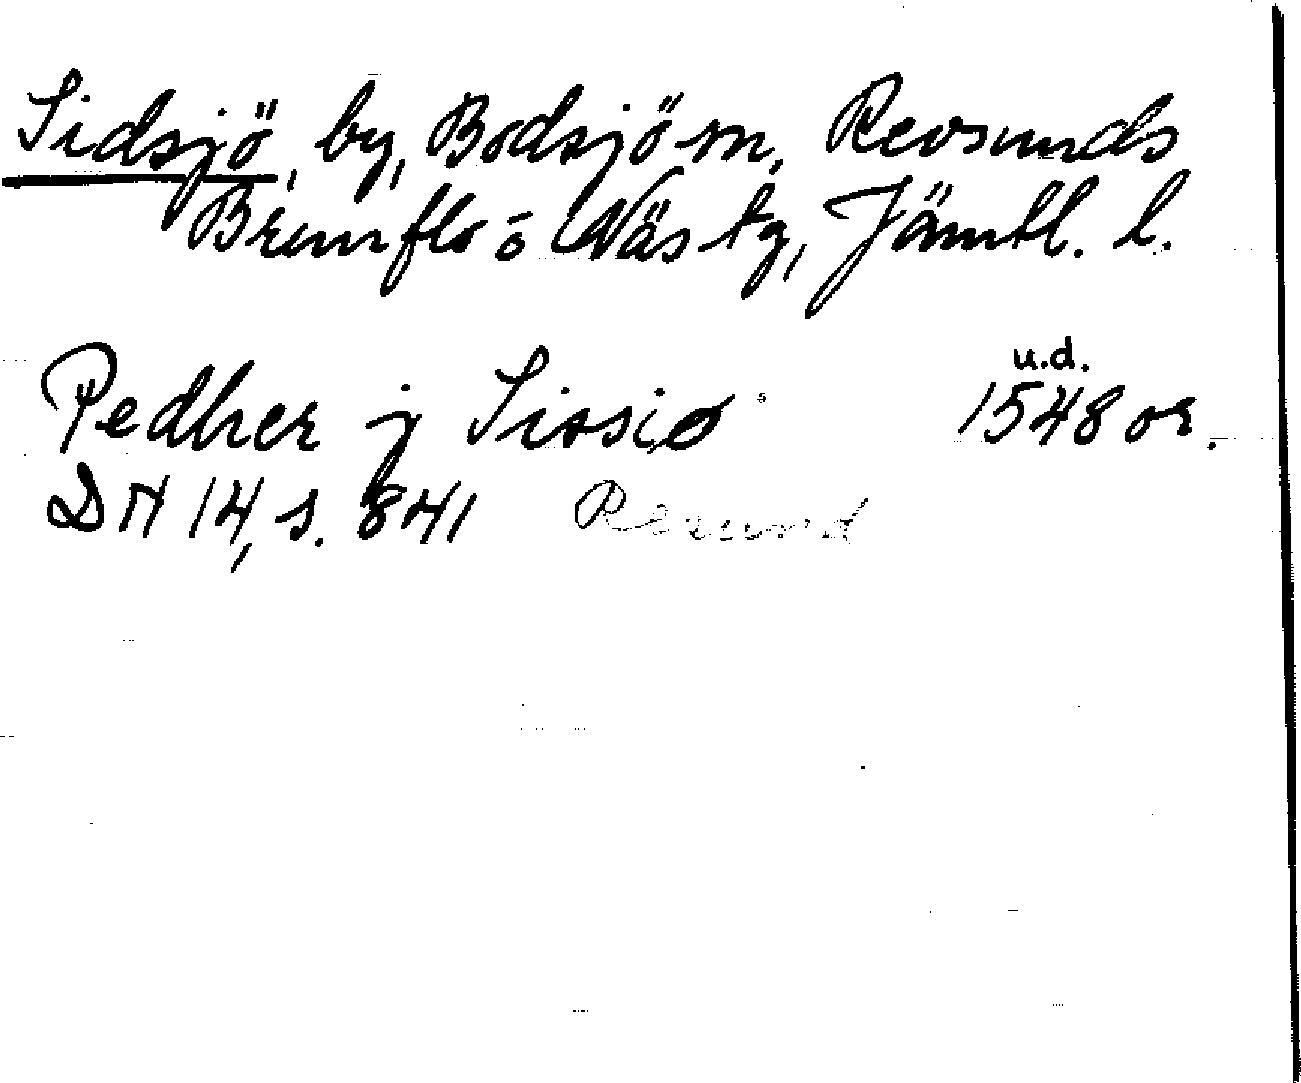 Sidsjö, by, Bodsjö sn, Revsunds
Brunflo o Näs tg, Jämtl. l.
u.d.
Pedher j Sissiø 1548 or.
DN 14, s. 841 Resund